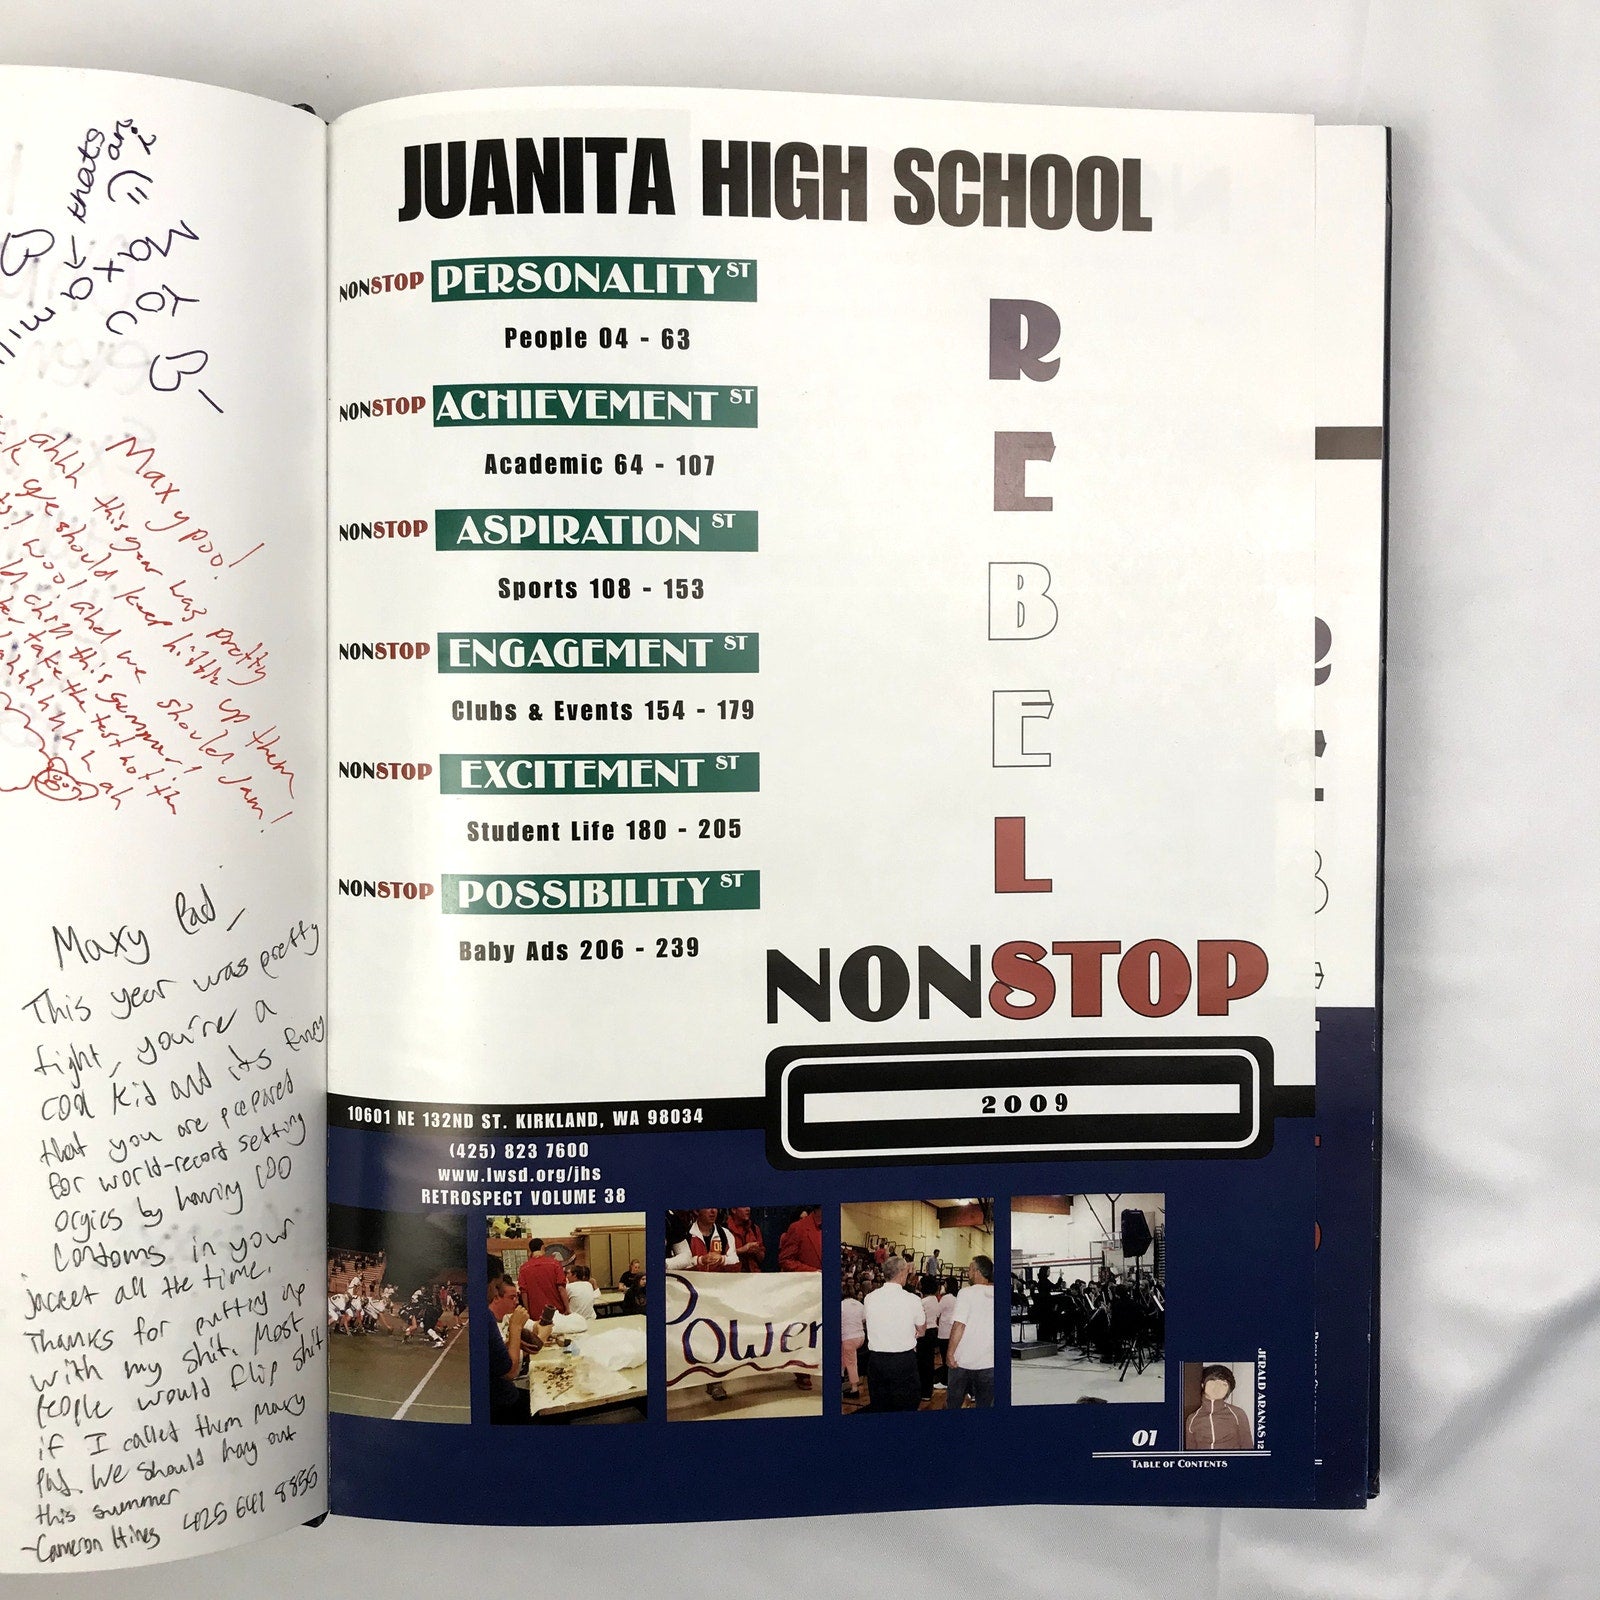 thats
an?
Max You
B-
Maxypoo!
ahhh this year was pretty
we should keep hittin up them
and we should jam!
this summer!
take the test
Maxy Pad,
This year was pretty
tight, you're a
cool kid and its funny
that you are prepared
for world-record setting
orgies by having 100
condoms in your
jacket all the time.
Thanks for putting up
with my shit. Most
people would flip shit
if I called them Maxy
Pad. We should hang out
this summer
-Cameron Hines 425 641 8855
JUANITA HIGH SCHOOL
NONSTOP PERSONALITY ST
People 04 - 63
NONSTOP ACHIEVEMENT ST
Academic 64 - 107
NONSTOP ASPIRATION ST
Sports 108 - 153
NONSTOP ENGAGEMENT ST
Clubs & Events 154 - 179
NONSTOP EXCITEMENT ST
Student Life 180 - 205
NONSTOP POSSIBILITY ST
Baby Ads 206 - 239
R
E
B
E
L
NONSTOP
2009
10601 NE 132ND ST. KIRKLAND, WA 98034
(425) 823 7600
www.lwsd.org/jhs
RETROSPECT VOLUME 38
Power
JERALD ARANAS 12
01
TABLE OF CONTENTS